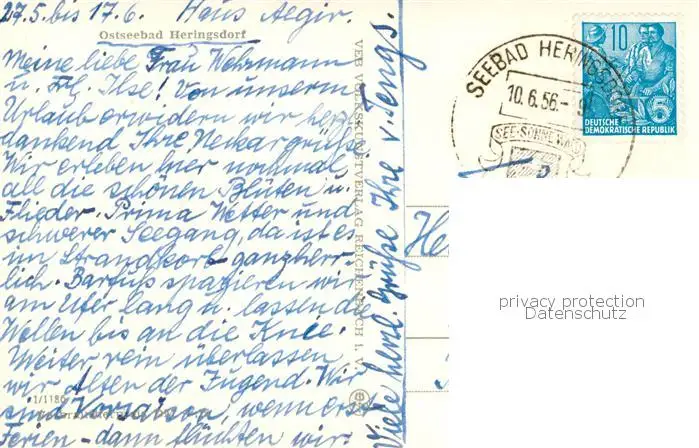 27.5. bis 17.6. Haus Aegir.
Ostseebad Heringsdorf
Meine liebe Frau Wehrmann
u. Frl. Ilse! Von unserm
Urlaub erwidern wir herz
dankend Ihre Neckargrüße
Wir erleben hier nochmal
all die schönen Blüten u.
Flieder. Prima Wetter und
schwerer Seegang, da ist es
im Strandkorb ganz herr-
lich. Barfuß spazieren wir
am Ufer lang u. lassen die
Wellen bis an die Knie.
Weiter rein überlassen
wir Alten der Jugend. Wir
sind Vorsaison, wenn erst
Ferien - dann flüchten wir
1/1186
Viele herzl. Grüße Ihre v. Tengs.
VEB VOLKSKUNSTVERLAG REICHENBACH I. V.
SEEBAD HERINGSDORF
10.6.56.- 9
SEE-SONNE-WALD
10
5
DEUTSCHE
DEMOKRATISCHE REPUBLIK
He
privacy protection
Datenschutz